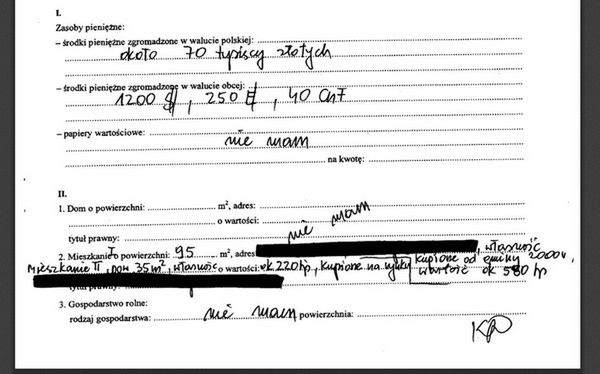 I.
Zasoby pieniężne:
– środki pieniężne zgromadzone w walucie polskiej:
około 70 tysięcy złotych
– środki pieniężne zgromadzone w walucie obcej:
1200 $, 250 £, 40 CHF
– papiery wartościowe:
nie mam
na kwotę:
II.
1. Dom o powierzchni: m², adres:
nie mam
o wartości:
tytuł prawny:
2. Mieszkanie I o powierzchni: 95 m², adres , własność
kupione od gminy 2000 r.
Mieszkanie II, pow 35 m², własność o wartości: ok 220 tys, kupione na
wartość ok 580 tys
tytuł prawny:
3. Gospodarstwo rolne:
rodzaj gospodarstwa: nie mam powierzchnia: